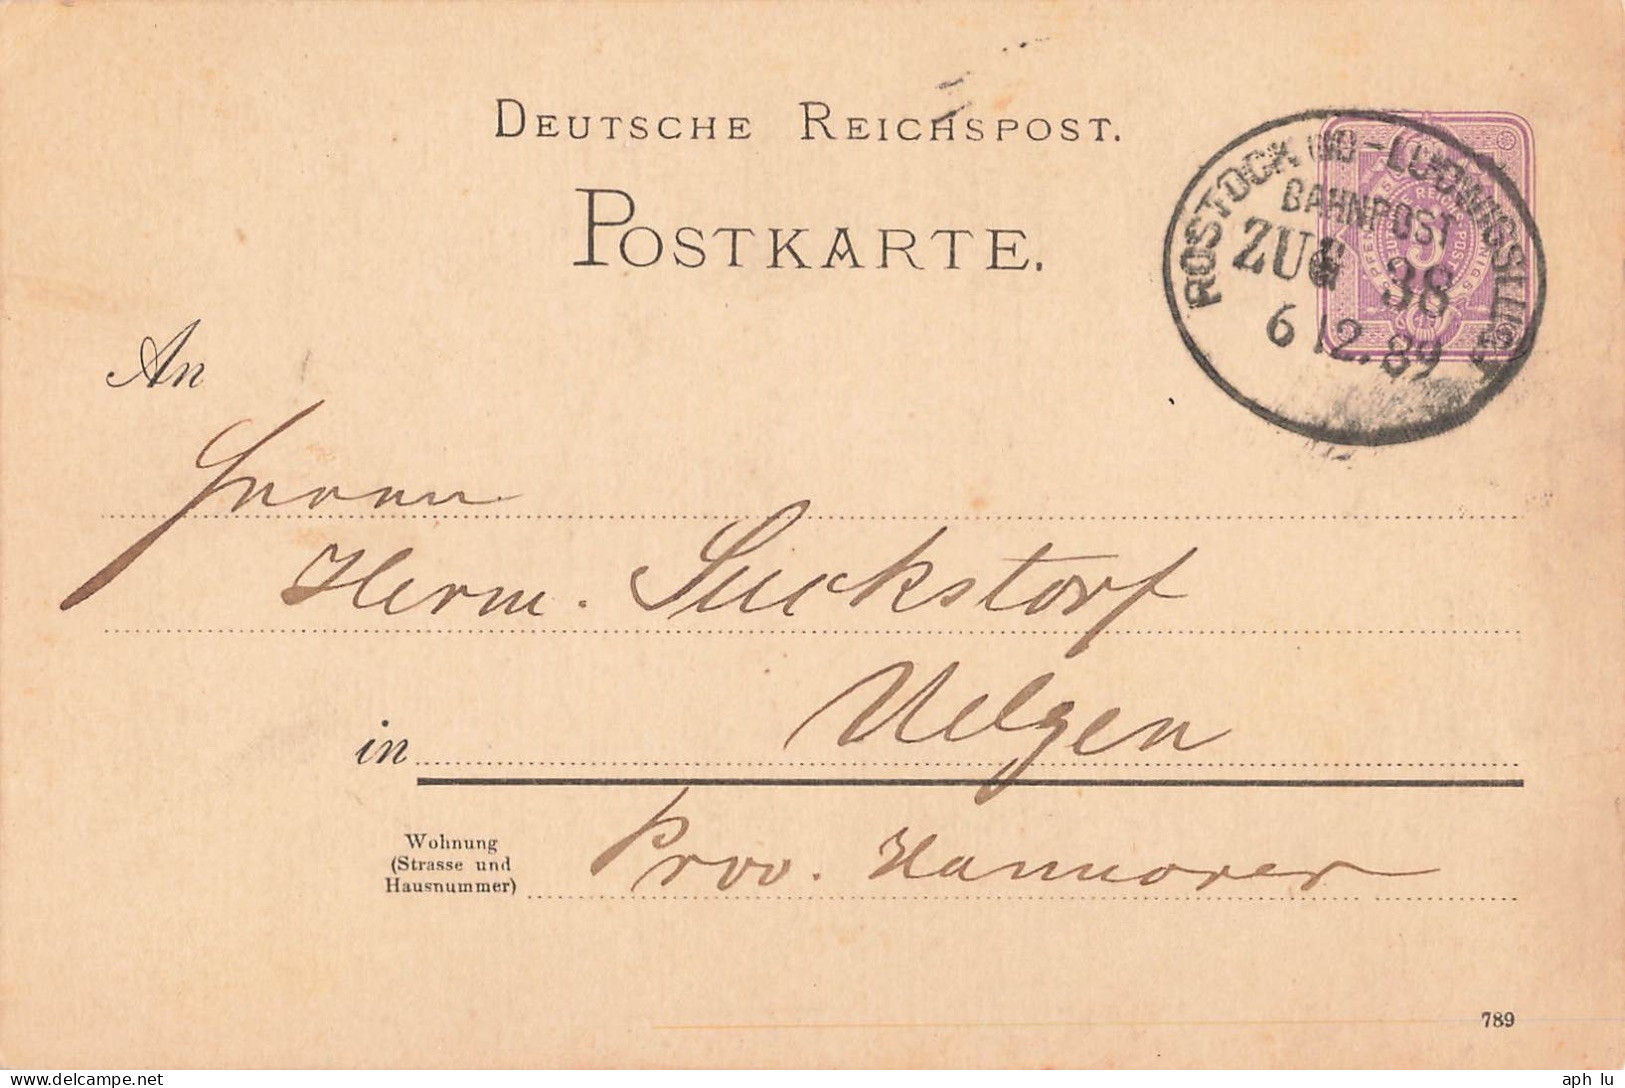 DEUTSCHE REICHSPOST.
POSTKARTE.
ROSTOCK OD-LUDWIGSLUST
BAHNPOST
ZUG 38
6 12.89
An
Herrn
Herm. Suckstorf
in Uelzen
Wohnung
(Strasse und
Hausnummer)
Prov. Hannover
789
aph lu